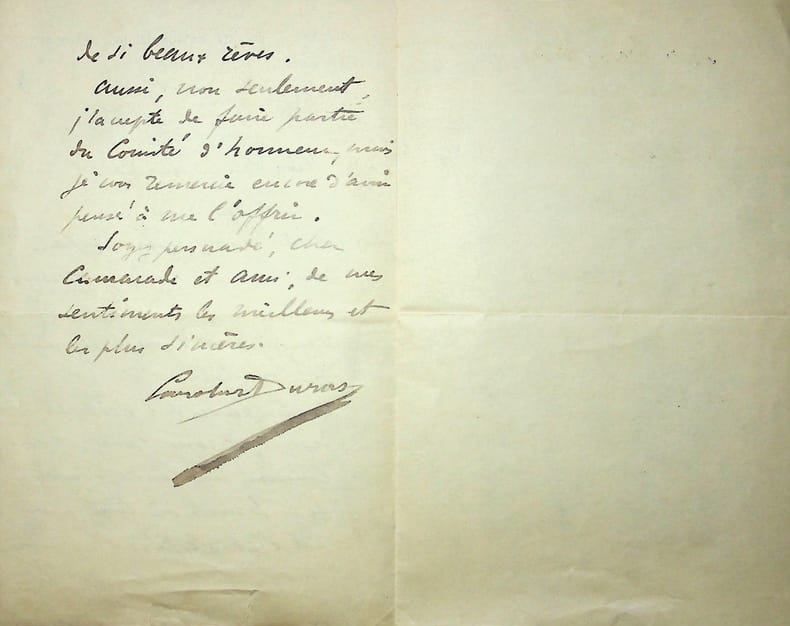 de si beaux rêves.
aussi, non seulement,
j'accepte de faire partie
du Comité d'honneur, mais
je vous remercie encore d'avoir
pensé à me l'offrir.
Soyez persuadé, cher
Camarade et ami, de mes
sentiments les meilleurs et
les plus sincères.
Carolus Duran